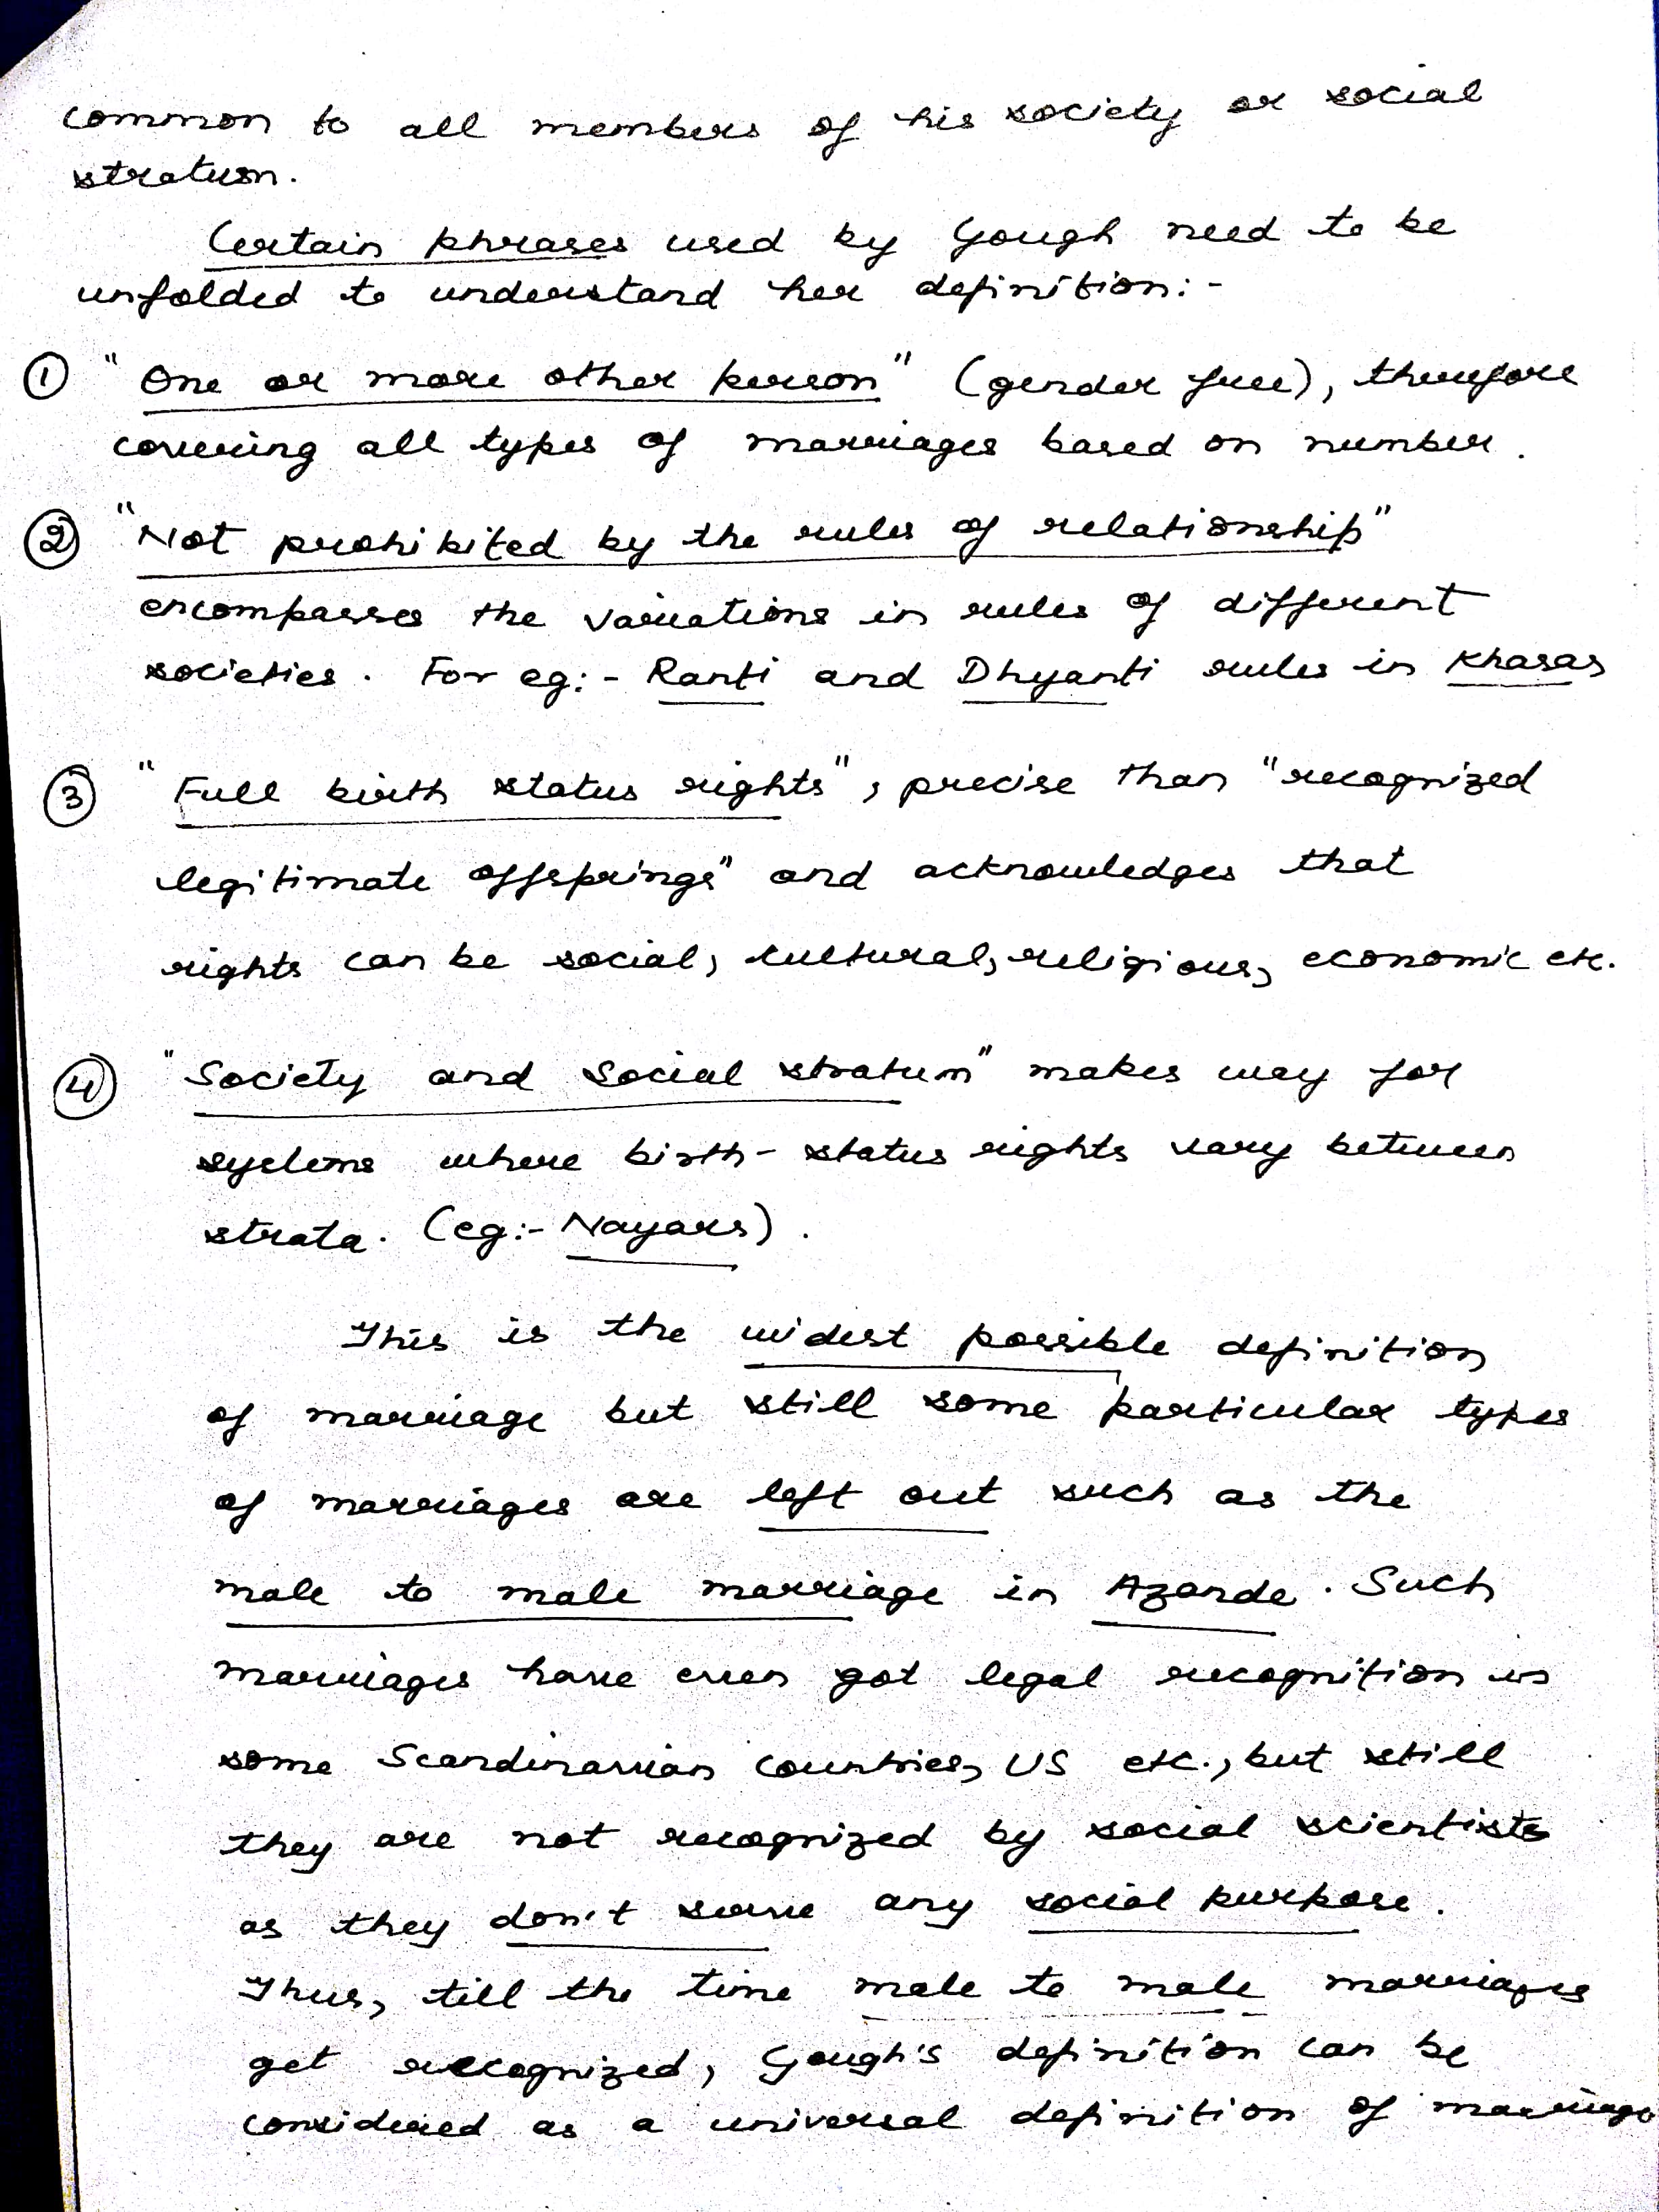 common to all members of his society or social
stratum.
Certain phrases used by Gough need to be
unfolded to understand her definition:-
① "One or more other person" (gender free), therefore
covering all types of marriages based on number.
② "Not prohibited by the rules of relationship"
encompasses the variations in rules of different
societies. For eg:- Ranti and Dhyanti rules in Khasas
③ "Full birth status rights", precise than "recognized
legitimate offsprings" and acknowledges that
rights can be social, cultural, religious, economic etc.
④ "Society and Social stratum" makes way for
systems where birth-status rights vary between
strata. (eg:- Nayars).
This is the widest possible definition
of marriage but still some particular types
of marriages are left out such as the
male to male marriage in Azande. Such
marriages have even got legal recognition in
some Scandinavian countries, US etc., but still
they are not recognized by social scientists
as they don't serve any social purpose.
Thus, till the time male to male marriages
get recognized, Gough's definition can be
considered as a universal definition of marriage